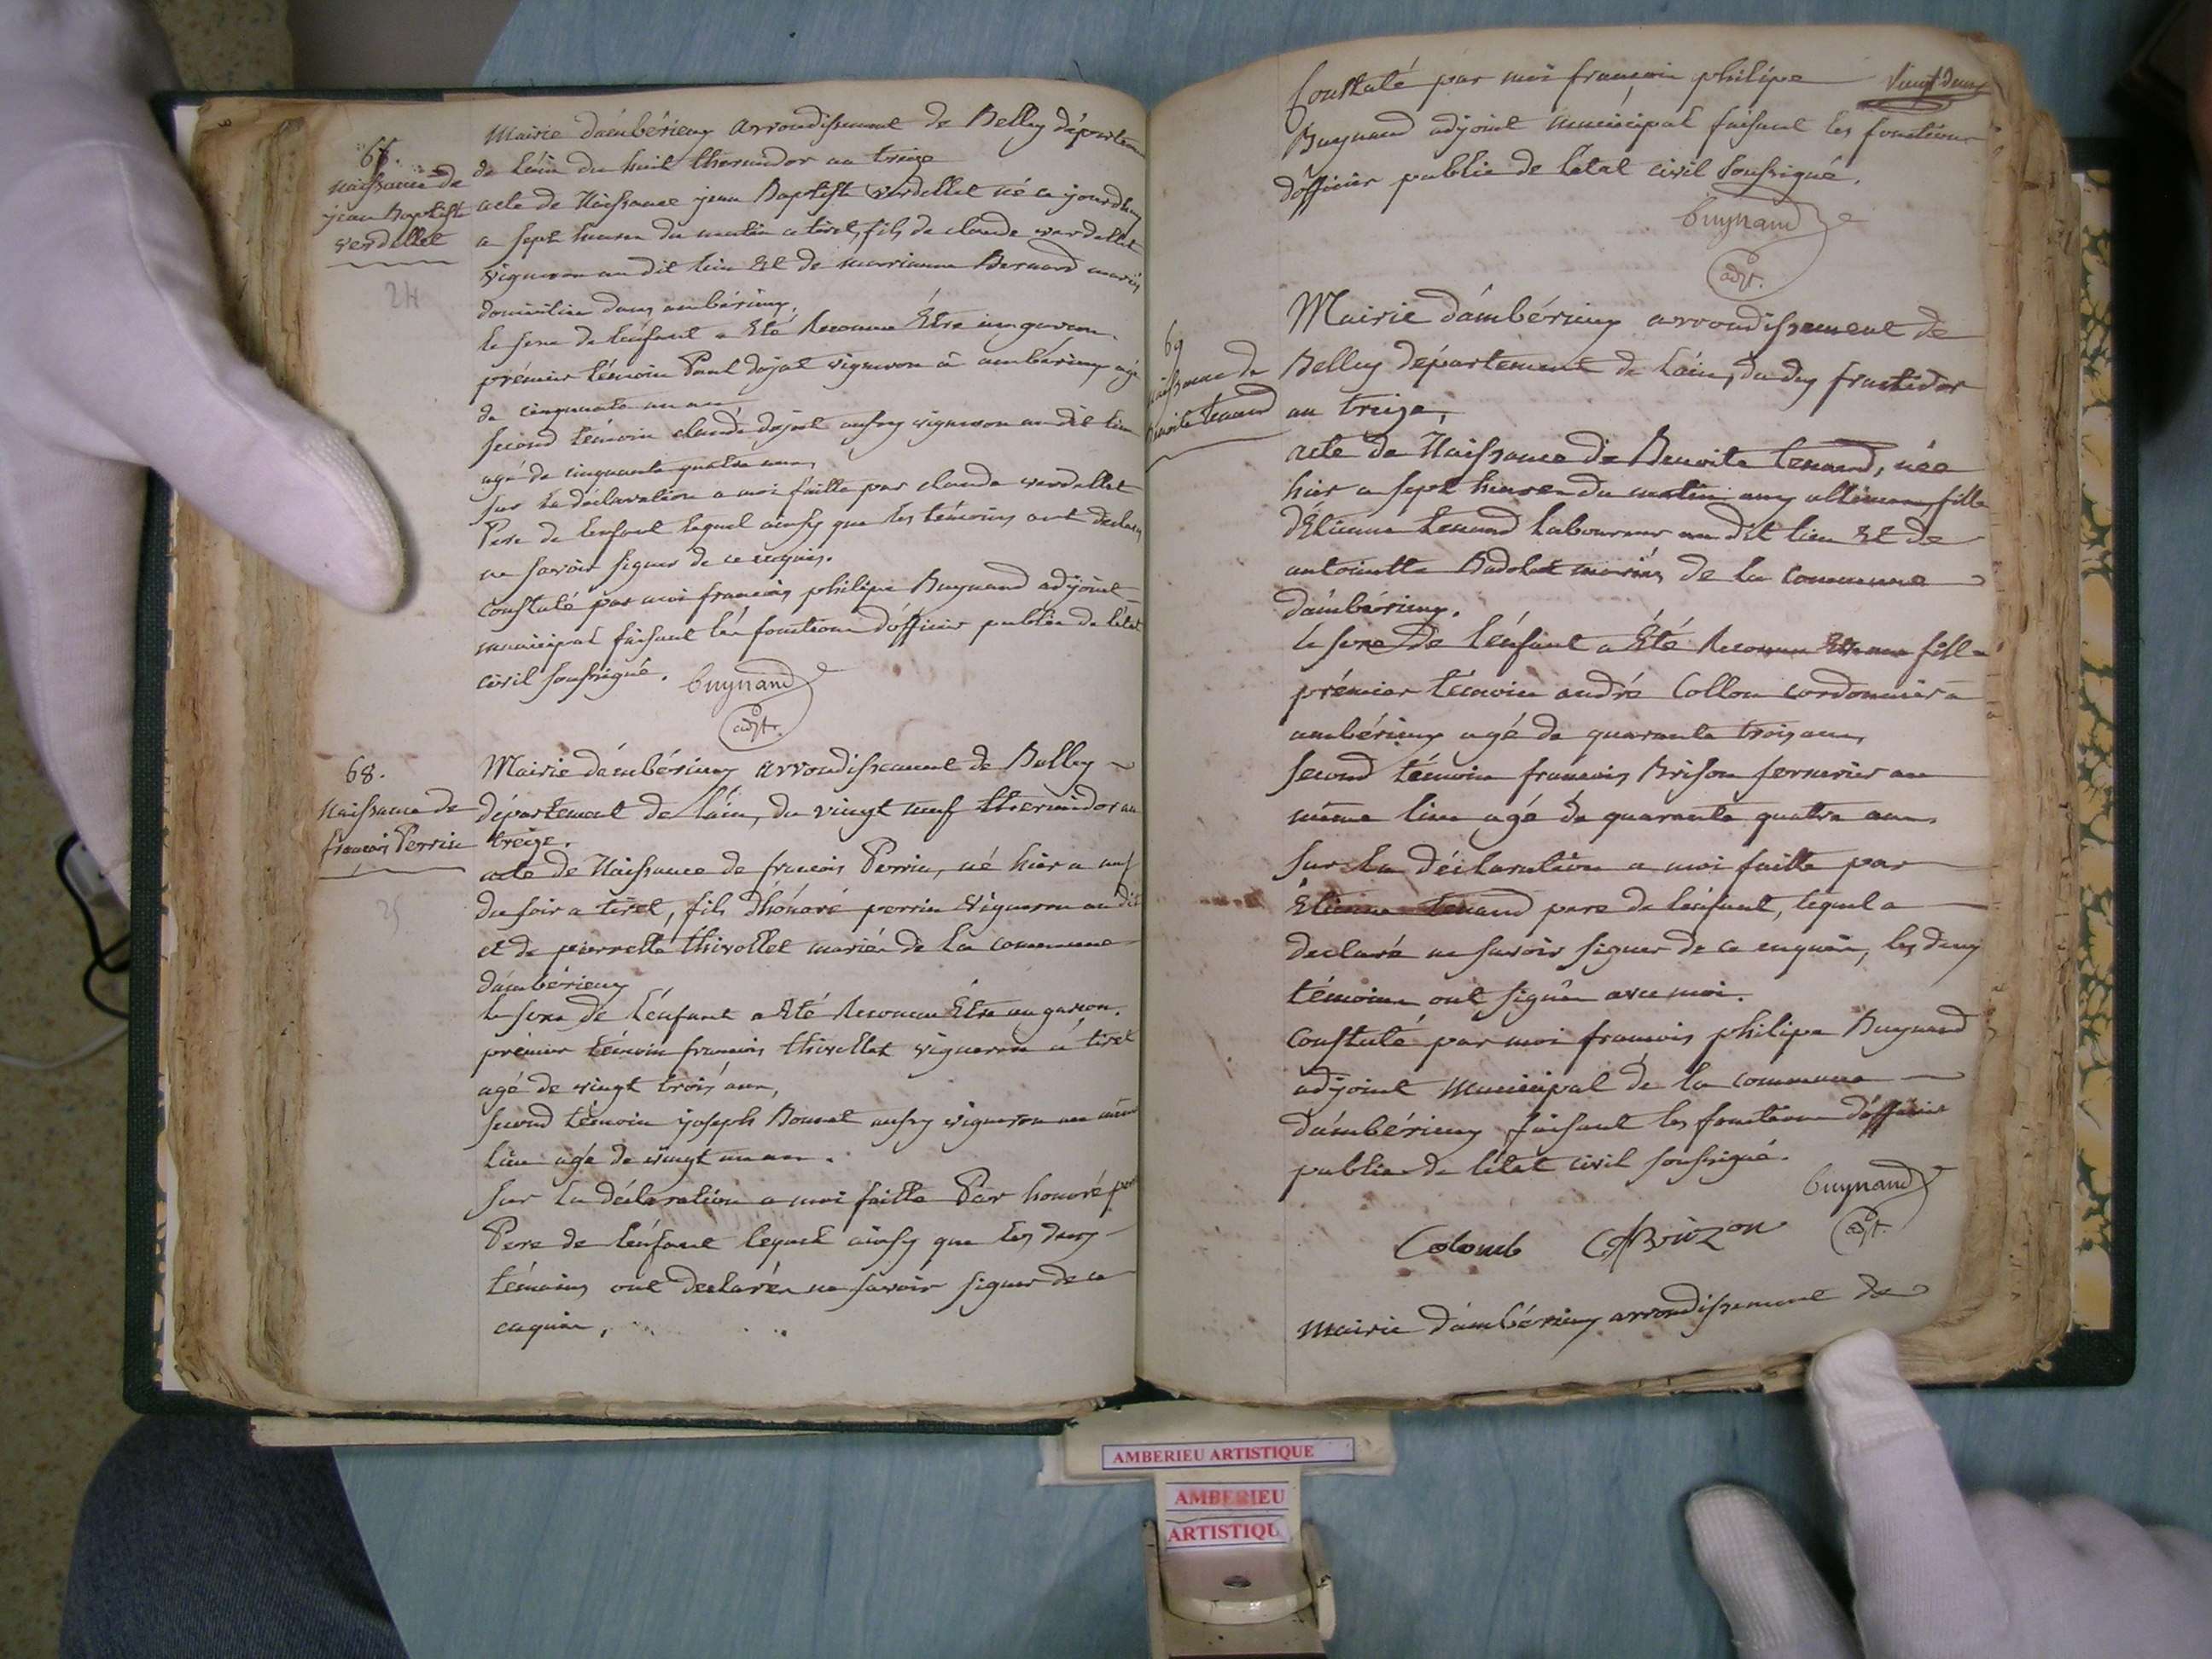 67.
naissance de
jean Baptiste
verdellet
24
Mairie d'ambérieux arrondissement de Belley départem
de l'ain du huit thermidor an treize
acte de Naissance jean Baptiste verdellet né ce jourdhuy
a sept heures du matin a tiret, fils de claude verdellet
vigneron au dit lieu Et de marianne Bernard mariés
domiciliés dans ambérieux.
le sexe de l'enfant a Eté Reconnu Être un garcon.
prémier témoin Paul dojat vigneron à ambérieux agé
de cinquante un an
second témoin claude dojat aussy vigneron au dit lieu
agé de cinquante quatre ans,
sur la déclaration a moi faitte par claude verdellet
Pere de lenfant lequel ainsy que les témoins ont déclaré
ne savoir signer de ce enquis.
Constaté par moi francois philipe Buynand adjoint
municipal faisant les fonctions d'officier public de l'état
civil soussigné.
buynand
adjt.
68.
Naissance de
francois Perrin
25
Mairie d'ambérieux arrondissement de Belley
département de l'ain, du vingt neuf thermidor an
treize.
acte de Naissance de francois Perrin, né hier a neuf
du soir a tiret, fils d'hónoré perrin vigneron au dit
et de pierrette thivollet mariés de la commune
d'ambérieux
le sexe de l'énfant a Eté Reconnu Être un garcon.
prémier témoin francois thivollet vigneron à tiret
agé de vingt trois ans,
second témoin joseph Bonnet aussy vigneron au même
lieu agé de vingt un an.
sur la déclaration a moi faitte Par honoré
Pere de l'énfant lequel ainsy que les deux
témoins ont declarés ne savoir signer de ce
enquis,
Constaté par moi françois philipe
vingt deux
Buynand adjoint municipal faisant les fonctions
d'officier public de l'état civil soussigné.
buynand
adjt.
69
naissance de
benoite tenand
Mairie d'ambérieux arrondissement de
Belley département de l'ain, du dix fructidor
an treize,
acte de Naissance de Benoite tenand, née
hier a sept heures du matin aux allimes, fille
d'Etienne tenand laboureur au dit lieu Et de
antoinette Badolat mariés de la commune
d'ambérieux.
le sexe de l'énfant a Eté Reconnu Etre une fille
prémier témoin andré Collon cordonnier a
ambérieux agé de quarante trois ans,
second témoin francois Brison serrurier au
même lieu agé de quarante quatre ans.
sur la déclaration a moi faitte par
Etienne tenand pere de l'énfant, lequel a
declaré ne savoir signer de ce enquis, les deux
témoins ont signés avec moi.
Constaté par moi francois philipe Buynand
adjoint Municipal de la commune
d'ambérieux faisant les fonctions d'officier
public de l'état civil soussigné.
buynand
adjt.
Colomb Brizon
Mairie d'ambérieux arrondissement de
AMBERIEU ARTISTIQUE
AMBERIEU
ARTISTIQU